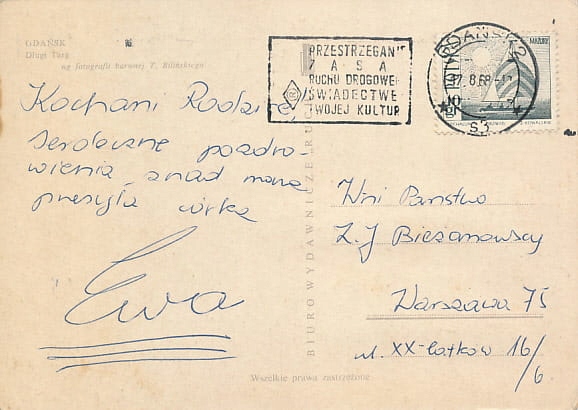 GDAŃSK
Długi Targ
wg fotografii barwnej T. Bilińskiego
Kochani Rodzice,
serdeczne pozdro-
wienia znad morza
przesyła córka
Ewa
BIURO WYDAWNICZE RUCH
Wszelkie prawa zastrzeżone
PRZESTRZEGANIE
ZASAD
RUCHU DROGOWEGO
ŚWIADECTWEM
TWOJEJ KULTURY
GDAŃSK 2
MAZURY
Wni Państwo
Z.J Bieżanowscy
Warszawa 75
ul. XX-latków 16/
6